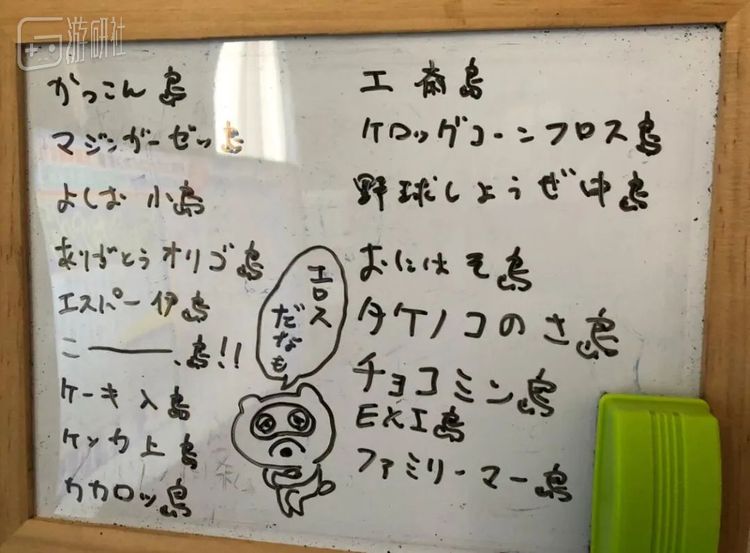 游研社
がっこん島
マジンガーゼッ島
よしお 小島
ありがとうオリゴ島
エスパー伊島
こ———、島!!
ケーキ入島
ケンカ上島
カカロッ島
エロス
だなも
工 斎島
ケロッグコーンフロス島
野球しようぜ中島
おにはそ島
タケノコのさ島
チョコミン島
EXI島
ファミリーマー島